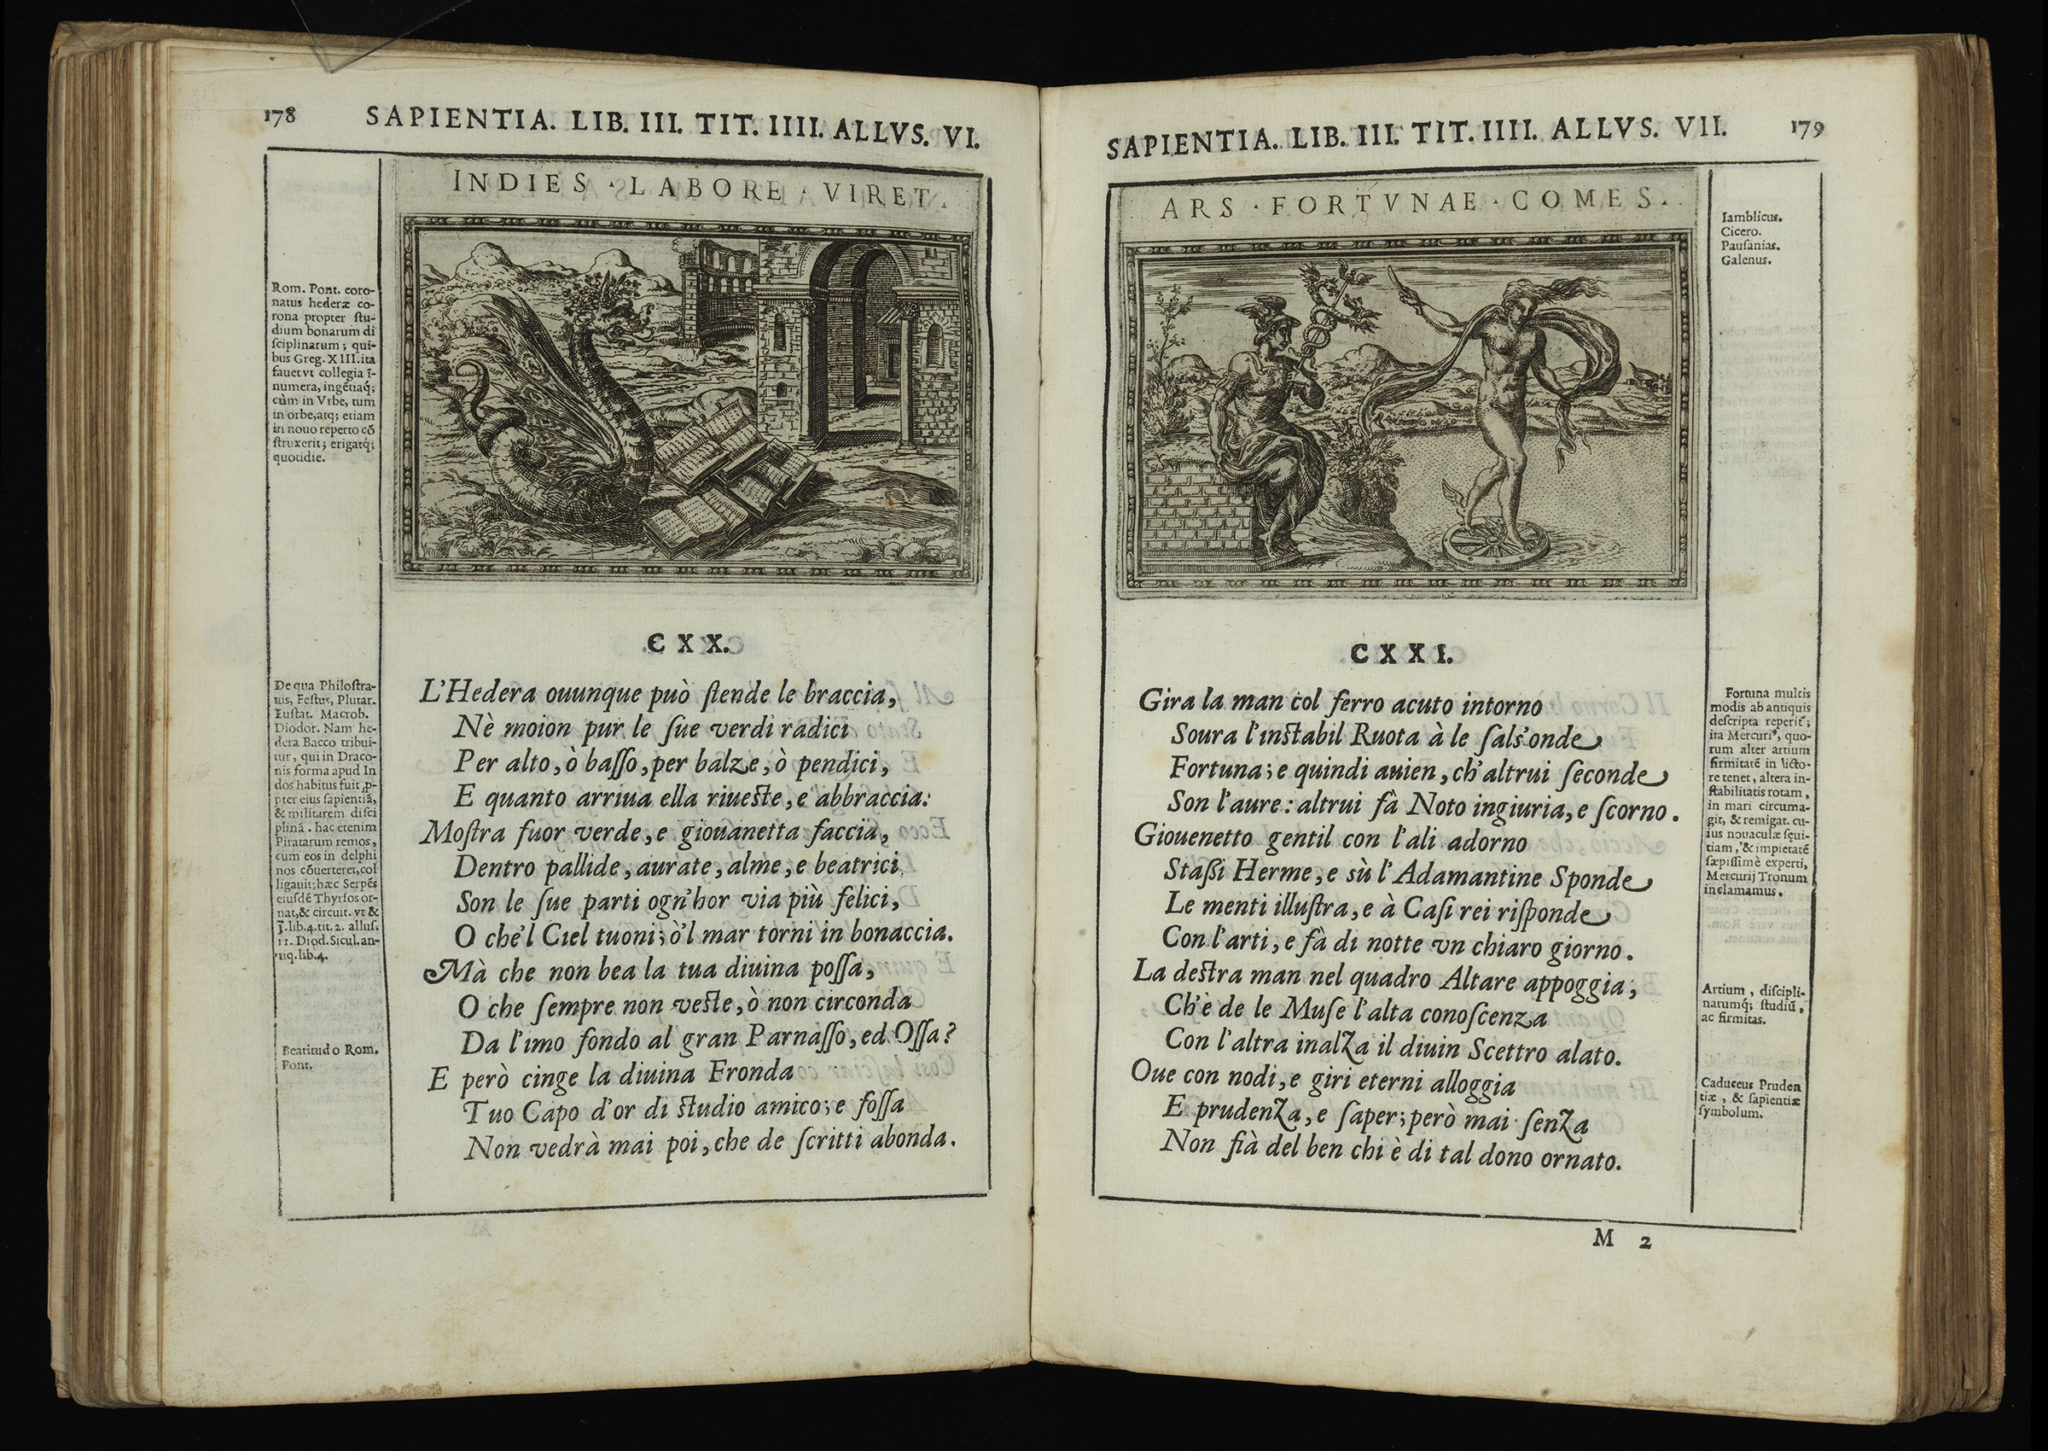 178
SAPIENTIA. LIB. III. TIT. IIII. ALLVS. VI.
INDIES · LABORE · VIRET ·
Rom. Pont. coro-
natus hederæ co-
rona propter stu-
dium bonarum di
sciplinarum; qui-
bus Greg. XIII. ita
fauet vt collegia ī-
numera, ingētiaq́;
cùm in Vrbe, tum
in orbe, atq; etiam
in nouo reperto cō
struxerit; erigatq́;
quotidie.
CXX.
L'Hedera ouunque può stende le braccia,
Nè moion pur le sue verdi radici
Per alto, ò basso, per balze, ò pendici,
E quanto arriua ella riueste, e abbraccia:
Mostra fuor verde, e giouanetta faccia,
Dentro pallide, aurate, alme, e beatrici
Son le sue parti ogn'hor via più felici,
O che'l Ciel tuoni; ò'l mar torni in bonaccia.
Mà che non bea la tua diuina possa,
O che sempre non veste, ò non circonda
Da l'imo fondo al gran Parnasso, ed Ossa?
E però cinge la diuina Fronda
Tuo Capo d'or di studio amico; e fossa
Non vedrà mai poi, che de scritti abonda.
De qua Philostra-
tus, Festus, Plutar.
Eustat. Macrob.
Diodor. Nam he-
dera Bacco tribui-
tur, qui in Draco-
nis forma apud In
dos habitus fuit, p-
pter eius sapientiā,
& militarem disci
plinā. hac etenim
Piratarum remos,
cum eos in delphi
nos cōuerteret, col
ligauit; hæc Serpēs
eiusdē Thyrsos or-
nat, & circuit. vt &
lib. 4. tit. 2. allus.
11. Diod. Sicul. an-
tiq. lib. 4.
Beatitudo Rom.
Pont.
SAPIENTIA. LIB. III. TIT. IIII. ALLVS. VII.
179
ARS · FORTVNAE · COMES ·
Iamblicus.
Cicero.
Pausanias.
Galenus.
CXXI.
Gira la man col ferro acuto intorno
Soura l'instabil Ruota à le sals'onde
Fortuna; e quindi auien, ch'altrui seconde
Son l'aure: altrui fà Noto ingiuria, e scorno.
Giouenetto gentil con l'ali adorno
Stassi Herme, e sù l'Adamantine Sponde
Le menti illustra, e à Casi rei risponde
Con l'arti, e fà di notte vn chiaro giorno.
La destra man nel quadro Altare appoggia,
Ch'è de le Muse l'alta conoscenza
Con l'altra inalza il diuin Scettro alato.
Oue con nodi, e giri eterni alloggia
E prudenza, e saper; però mai senza
Non fià del ben chi è di tal dono ornato.
Fortuna multis
modis ab antiquis
descripta reperit;
ita Mercuri9, quo-
rum alter artium
firmitatē in licto-
re tenet, altera in-
stabilitatis rotam,
in mari circuma-
git, & remigat. cu-
ius nouaculæ sęui-
tiam, & impietatē
sæpissimè experti,
Mercurij Tronum
inclamamus.
Artium, discipli-
narumq́; studiū,
ac firmitas.
Caduceus Pruden
tiæ, & sapientiæ
symbolum.
M 2